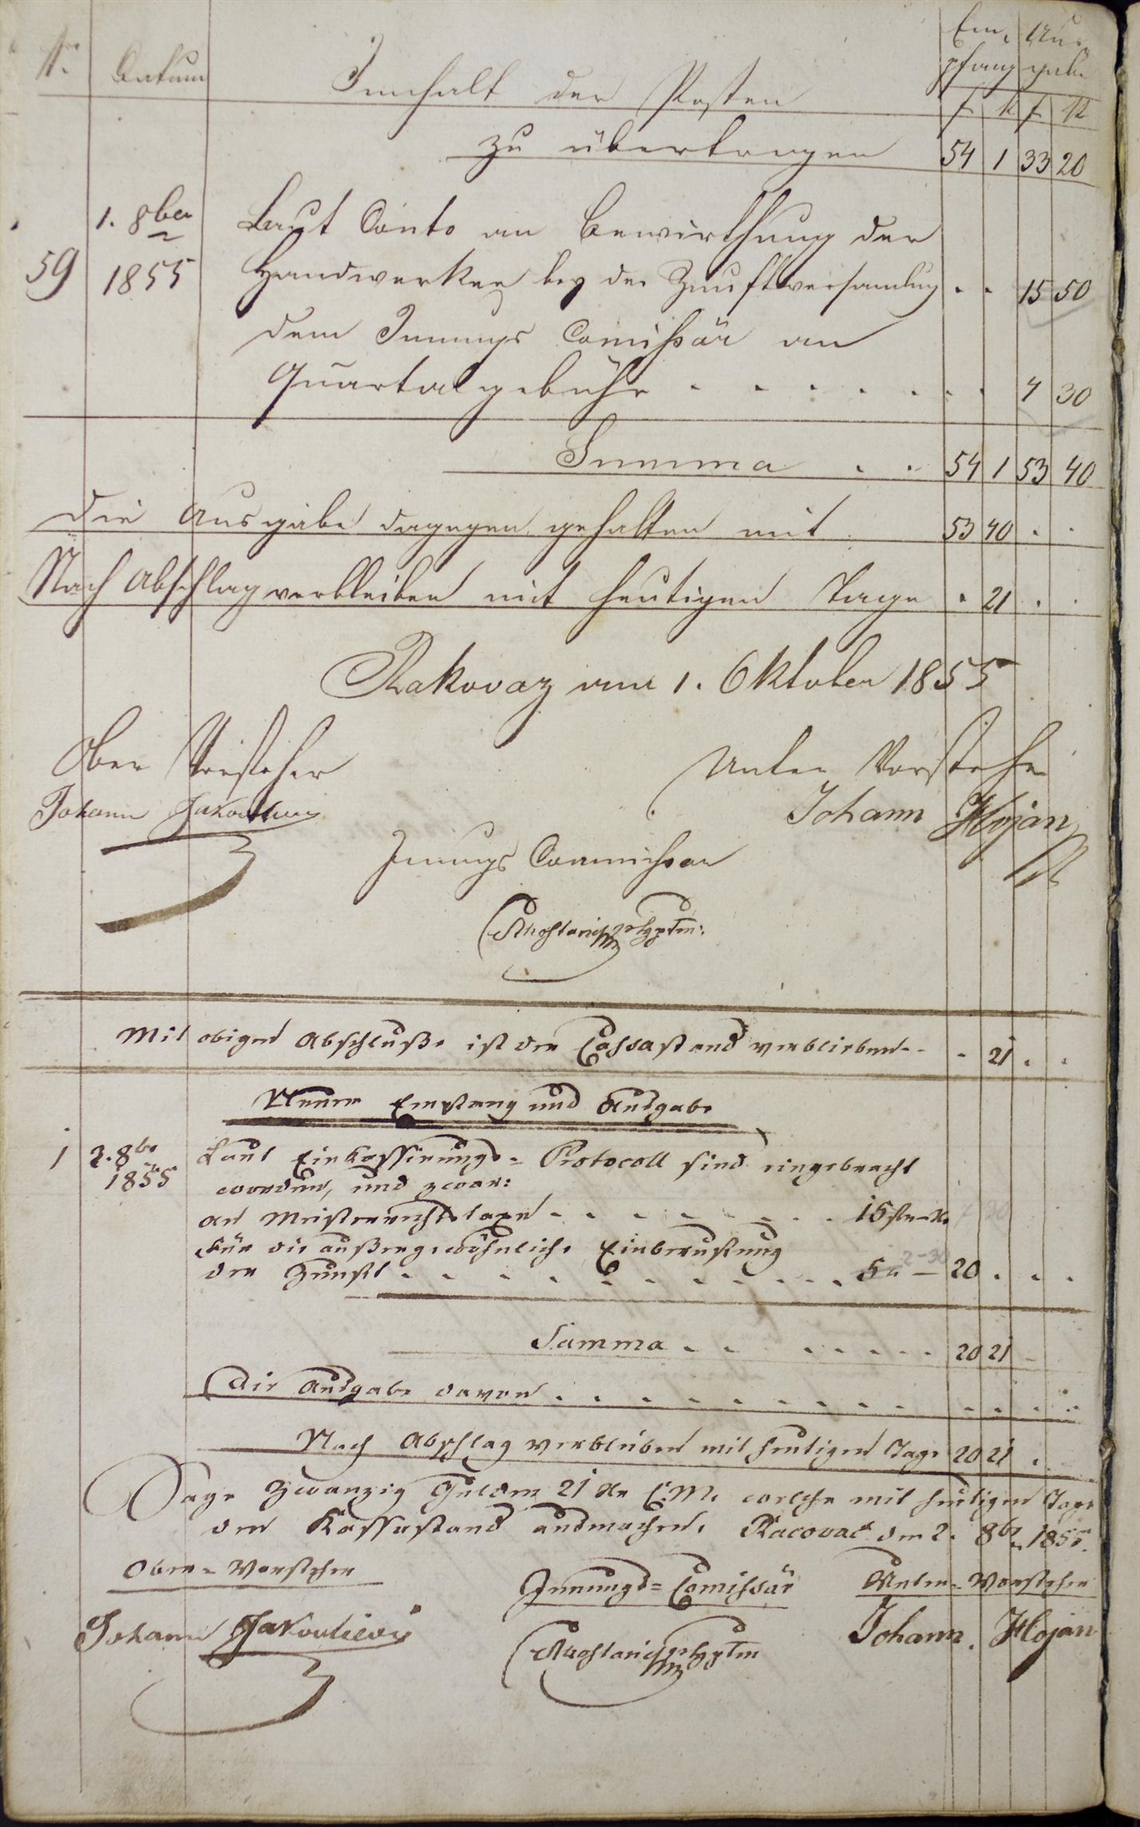 Nr. Datum Innhalt der Posten Em¬ pfang Aus¬ gabe
f k f k
zu übertragen 54 1 33 20
59 1. 8ber 1855 Laut Conto an Bewirthung der
Handwerker bey der Zunftversamlung . . 15 50
dem Innungs Comißär an
Quartalgebühr . . . . . . . 4 30
Summa . . 54 1 53 40
Die Ausgabe dagegen gehalten mit 53 40 . .
Nach Abschlag verbleiben mit heutigen Tage . 21 . .
Rakovaz am 1. Oktober 1855
Ober Vorsteher
Unter Vorsteher
Johann
Johann
Innungs Commißar
Mit obigen Abschluße ist der Cassastand verblieben . . . 21 . .
Neuer Empfang und Ausgabe
1 2. 8br 1855 Laut Einkassirungs- Protocoll sind eingebracht
worden, und zwar:
an Meisterrechtstaxen . . . . . . . 15 f – k
Für die außergewöhnliche Einberuffung
der Zunft . . . . . . . . . . . 5 " – 20 . . .
2–30
Summa . . . . . . . 20 21 –
Die Ausgabe davon . . . . . . . . . . . . .
Nach Abschlag verbleiben mit heutigen Tage 20 21 .
Sage Zwanzig Gulden 21 Kr C.M. welche mit heutigen Tage
den Kassastand ausmachen. Racovac den 2. 8br 1855.
Ober- Vorsteher Innungs-Comißär Unter- Vorsteher
Johann Johann